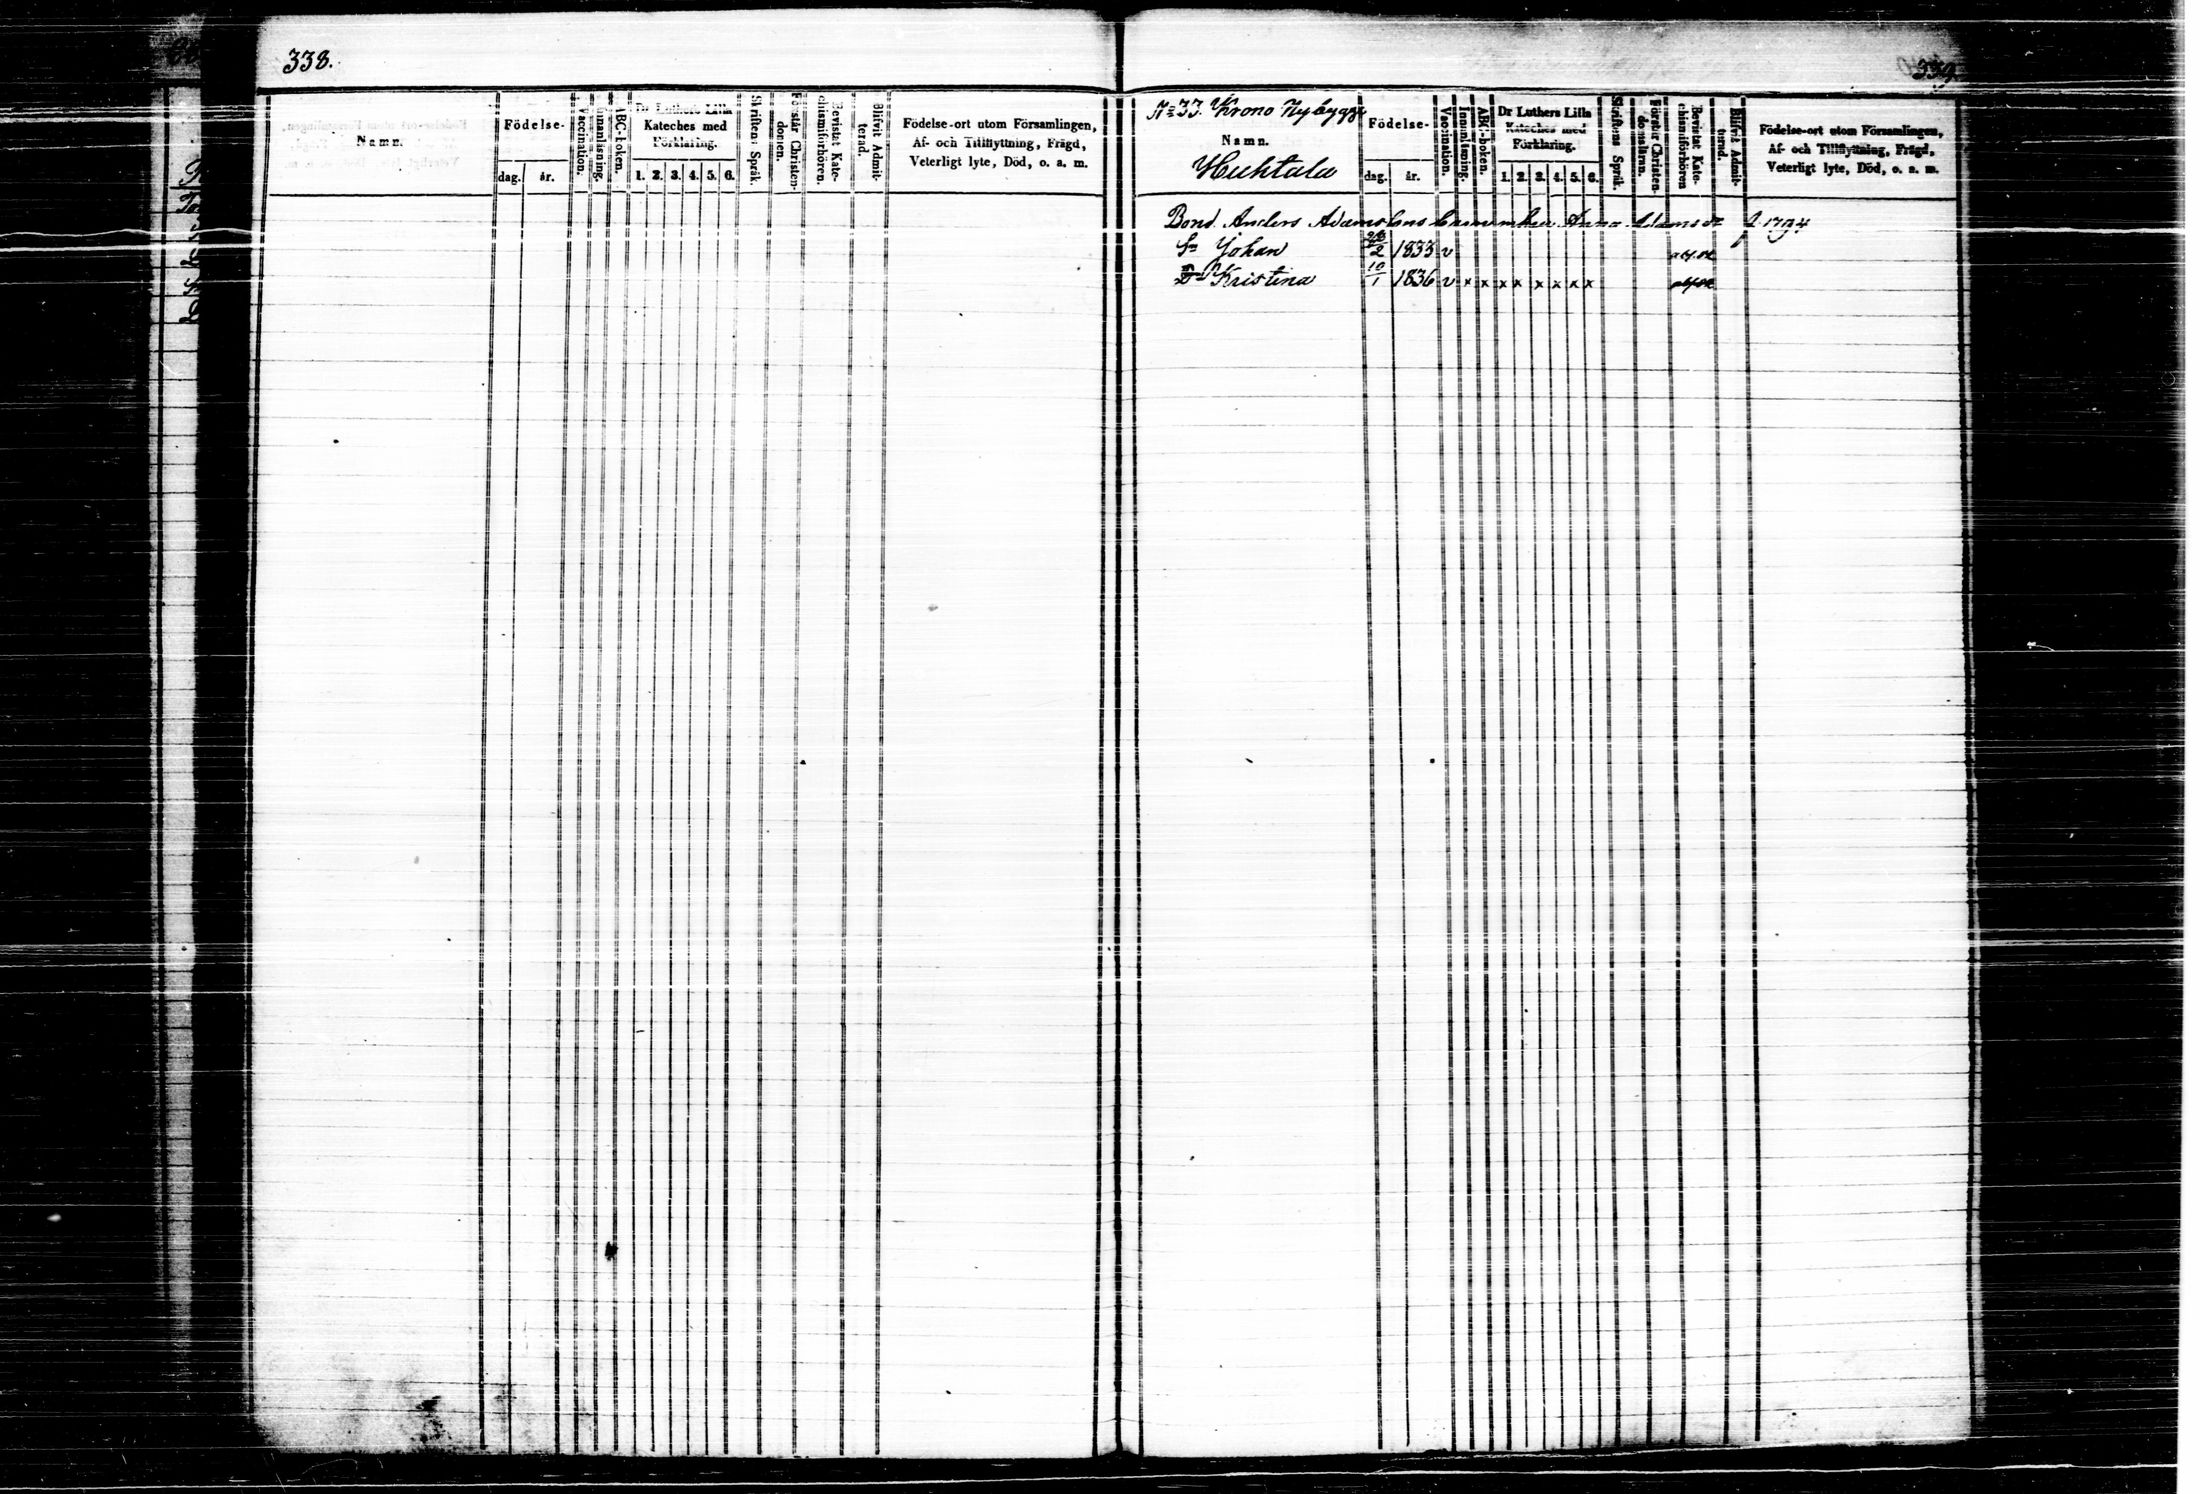 338.
Namn.
Födelse-
dag. år.
Vaccination.
Innanläsning.
ABC-boken.
Dr Luthers Lilla
Kateches med
Förklaring.
1. 2. 3. 4. 5. 6.
Skriftens Språk.
Förstår Christen-
domen.
Bevistat Kate-
chismiförhören.
Blifvit Admit-
terad.
Födelse-ort utom Församlingen,
Af- och Tillflyttning, Frägd,
Veterligt lyte, Död, o. a. m.
339.
N=33. Krono Nybygge
Namn.
Huhtala
Födelse-
dag. år.
Vaccination.
Innanläsning.
ABC-boken.
Dr Luthers Lilla
Kateches med
Förklaring.
1. 2. 3. 4. 5. 6.
Skriftens Språk.
Förstår Christen-
domsläran.
Bevistat Kate-
chismiförhören
Blifvit Admit-
terad.
Födelse-ort utom Församlingen,
Af- och Tillflyttning, Frägd,
Veterligt lyte, Död, o. a. m.
Bond. Anders Adamsson Anna Adamsdr f. 1794
Sn Johan 2 1833 v
Dr Kristina 10/1 1836 v x x x x x x x x